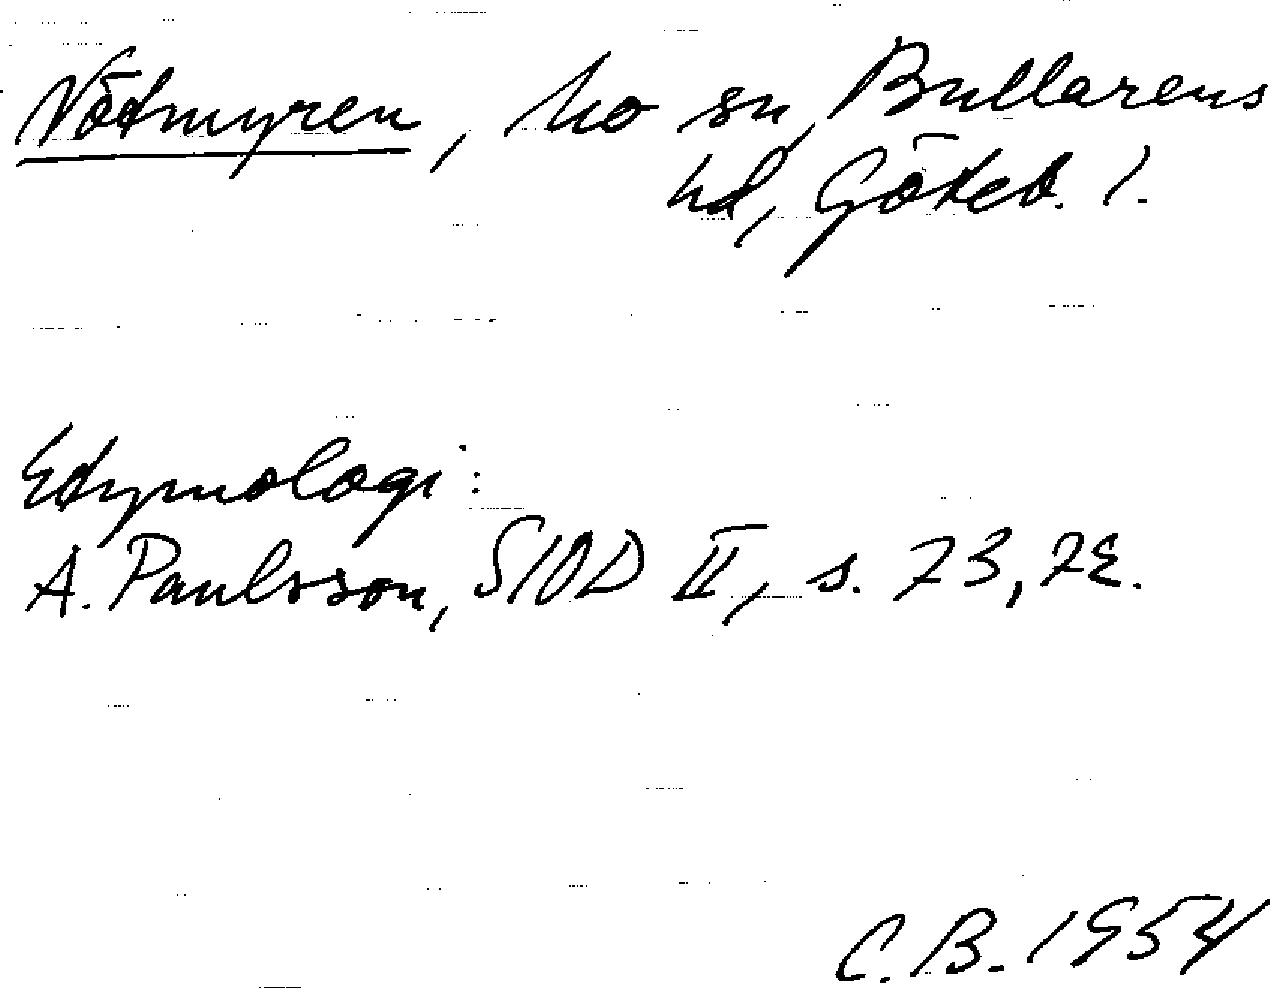 Nötmyren, Mo sn, Bullarens
hd, Göteb. l.
Etymologi:
A. Paulsson, SIOD II, s. 73, 78.
C.B. 1954